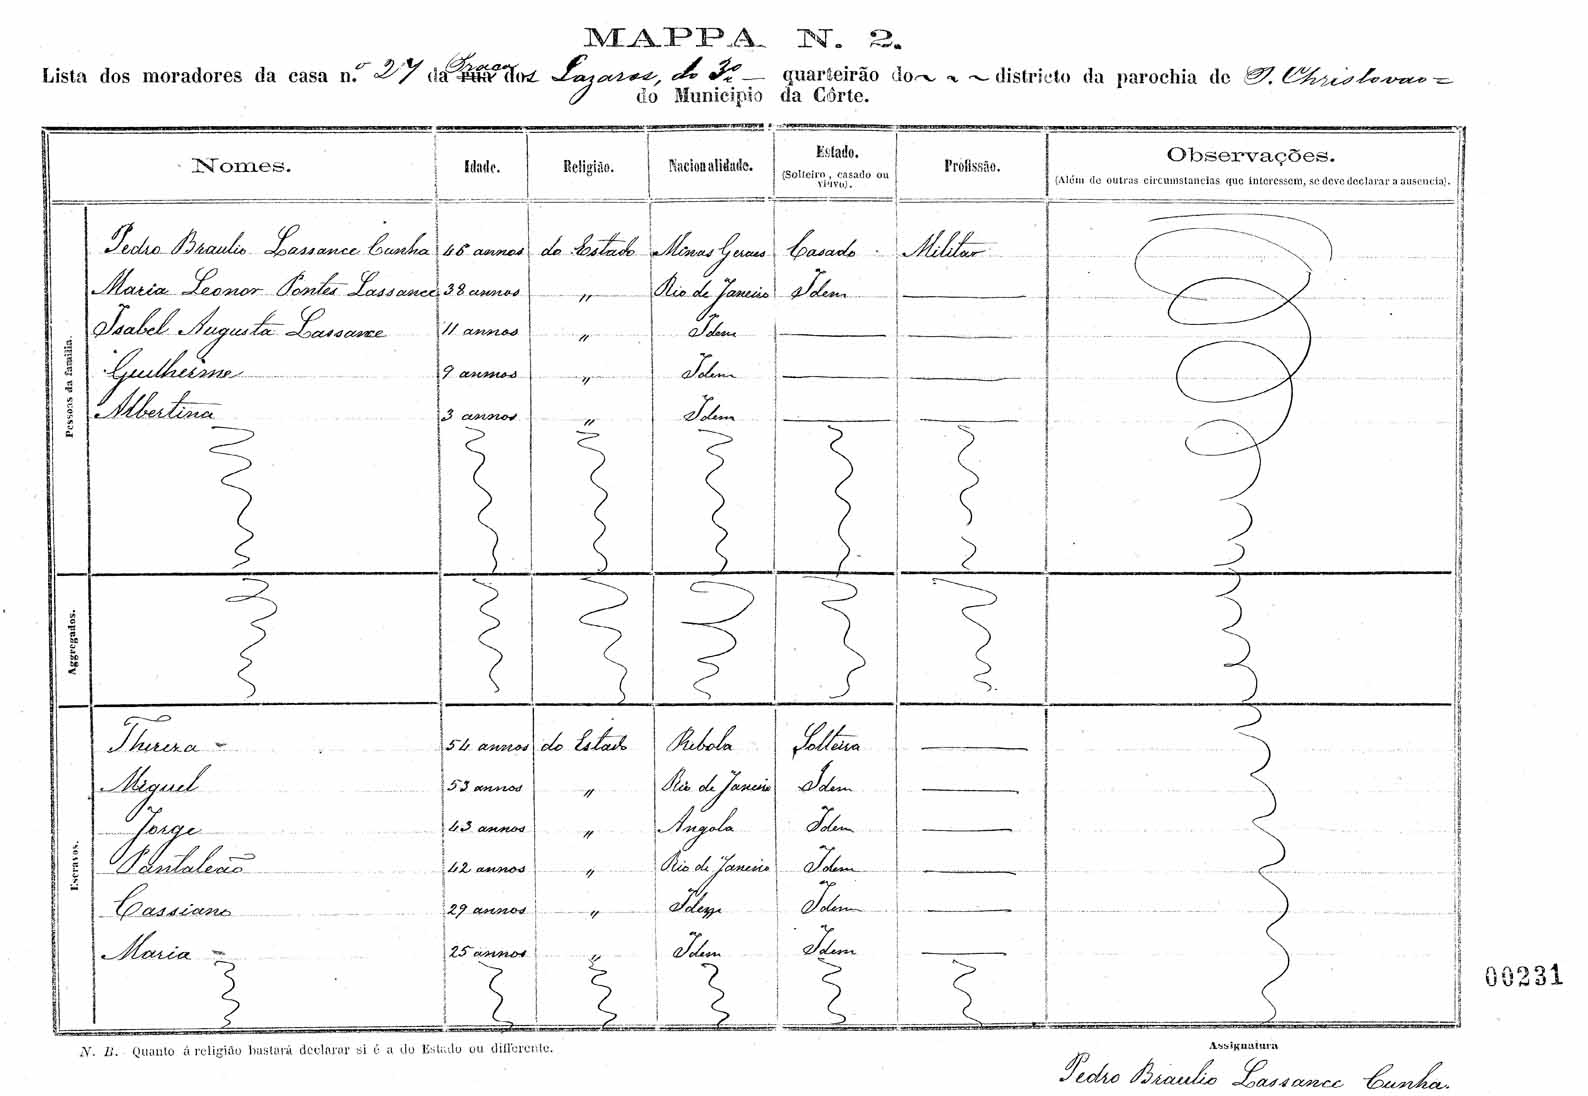 MAPPA N. 2.
Lista dos moradores da casa n.º 27 da rua Praça dos Lazaros, do 3º quarteirão do ~ ~ ~ districto da parochia de S. Christovao =
do Municipio da Côrte.
Nomes. Idade. Religião. Nacionalidade. Estado. (Solteiro, casado ou viuvo). Profissão. Observações. (Além de outras circumstancias que interessem, se deve declarar a ausencia).
Pessoas da familia.
Pedro Braulio Lassance Cunha 46 annos do Estado Minas Geraes Casado Militar
Maria Leonor Pontes Lassance 38 annos " Rio de Janeiro Idem —
Isabel Augusta Lassance 11 annos " Idem — —
Guilherme 9 annos " Idem — —
Albertina 3 annos " Idem — —
Aggregados.
Escravos.
Thereza - 54 annos do Estado Rebola Solteira —
Miguel 53 annos " Rio de Janeiro Idem —
Jorge 43 annos " Angola Idem —
Pantaleão 42 annos " Rio de Janeiro Idem —
Cassiano 29 annos " Idem Idem —
Maria - 25 annos " Idem Idem —
00231
N. B. Quanto á religião bastará declarar si é a do Estado ou differente.
Assignatura
Pedro Braulio Lassance Cunha.